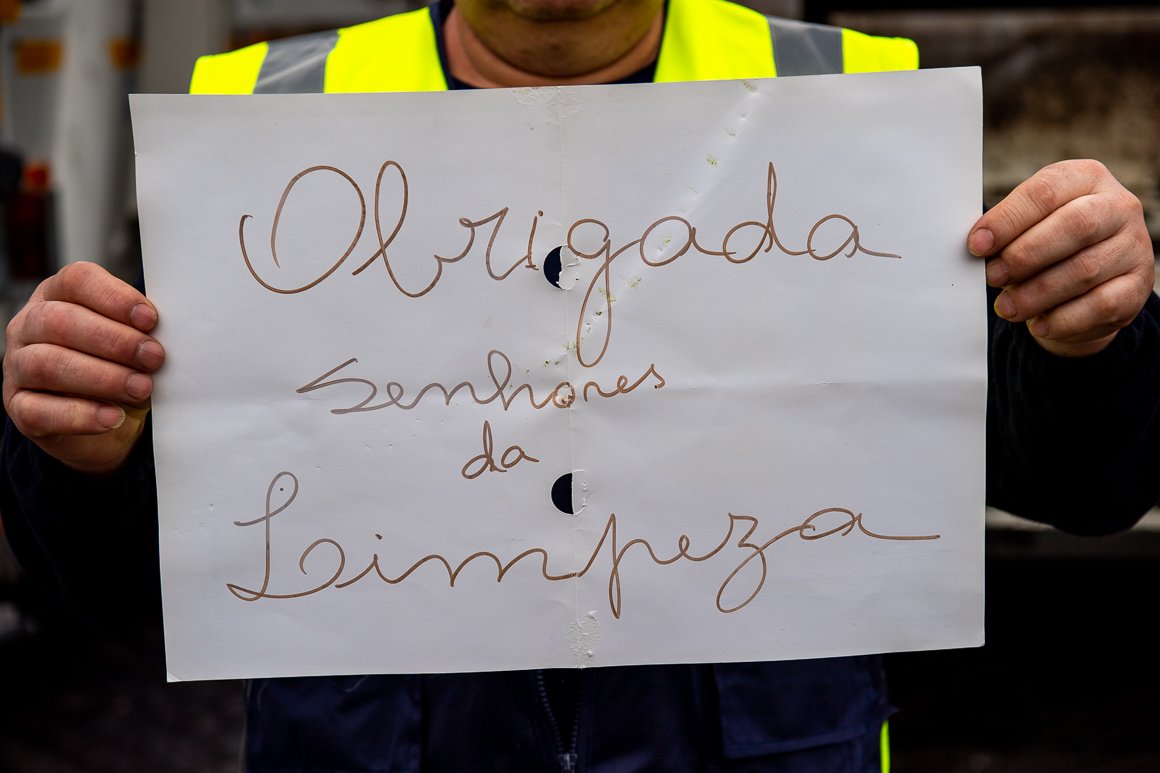 Obrigada
senhores
da
Limpeza